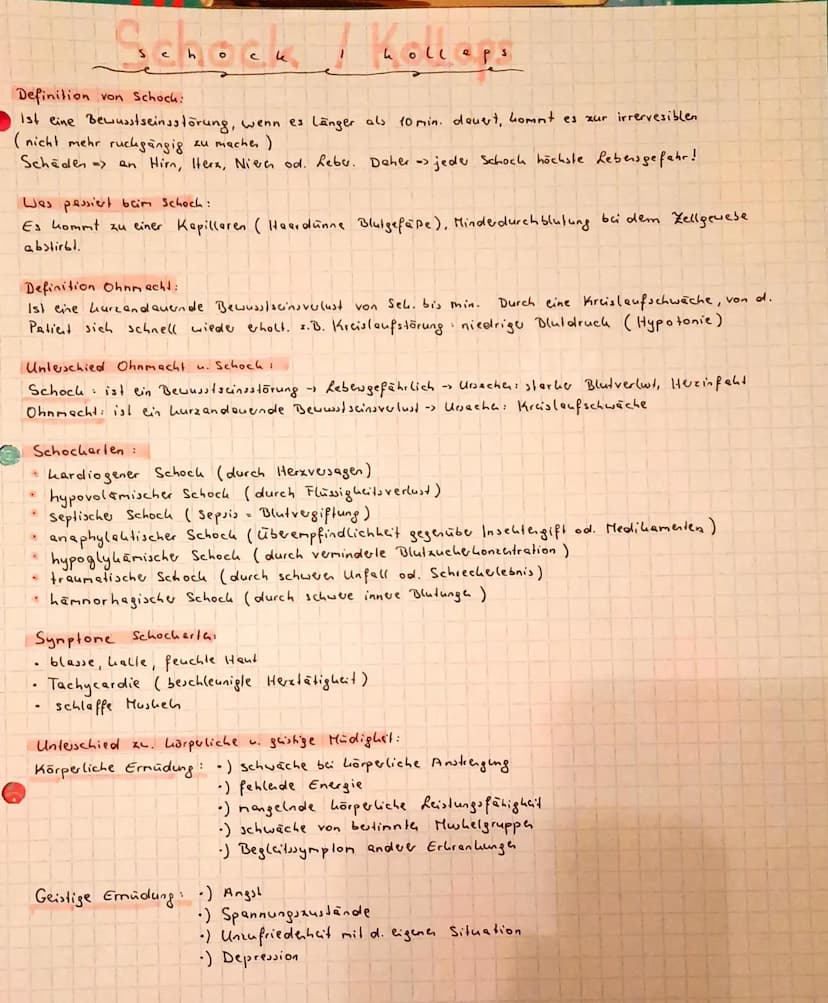 Schock / Kollaps
Definition von Schock:
Ist eine Bewusstseinsstörung, wenn es länger als 10 min. dauert, kommt es zur irrervesiblen
(nicht mehr ruckgängig zu machen)
Schäden => an Hirn, Herz, Nieren od. Leber. Daher => jeder Schock höchste Lebensgefahr!
Was passiert beim Schock:
Es kommt zu einer Kapillaren (Haardünne Blutgefäße), Minderdurchblutung bei dem Zellgewebe
abstirbt.
Definition Ohnmacht:
Ist eine kurzandauernde Bewusstseinsverlust von Sek. bis min. Durch eine Kreislaufschwäche, von d.
Patient sich schnell wieder erholt. z.B. Kreislaufstörung: niedriger Blutdruck (Hypotonie)
Unterschied Ohnmacht u. Schock:
Schock: ist ein Bewusstseinsstörung -> Lebensgefährlich -> Ursachen: starker Blutverlust, Herzinfakt
Ohnmacht: ist ein kurzandauernde Bewusstseinsverlust -> Ursache: Kreislaufschwäche
Schockarten:
• kardiogener Schock (durch Herzversagen)
• hypovolämischer Schock (durch Flüssigkeitsverlust)
• septischer Schock (Sepsis = Blutvergiftung)
• anaphylaktischer Schock (Überempfindlichkeit gegenüber Insektengift od. Medikamenten)
• hypoglykämischer Schock (durch verminderte Blutzuckerkonzentration)
• traumatische Schock (durch schweren Unfall od. Schreckerlebnis)
• hämnorhagischer Schock (durch schwere innere Blutungen)
Symptome Schockarten:
• blasse, kalte, feuchte Haut
• Tachycardie (beschleunigte Herztätigkeit)
• schlaffe Muskeln
Unterschied zw. körperliche u. geistige Müdigkeit:
Körperliche Ermüdung: •) schwäche bei körperliche Anstrengung
•) fehlende Energie
•) mangelnde körperliche Leistungsfähigkeit
•) schwäche von bestimmten Muskelgruppen
•) Begleitsymptom anderer Erkrankungen
Geistige Ermüdung: •) Angst
•) Spannungszustände
•) Unzufriedenheit mit d. eigenen Situation
•) Depression